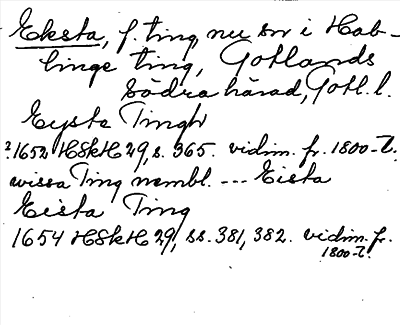 Eksta, f. ting nu sn i Hab-
linge ting, Gotlands
södra härad, Gotl. l.
Eysta Tingh
?1652 HSkH 29, s. 365. vidim. fr. 1800-t.
wissa Ting nembl. --- Eista
Eista Ting
1654 HSkH 29, ss. 381, 382. vidim. fr.
1800-t.